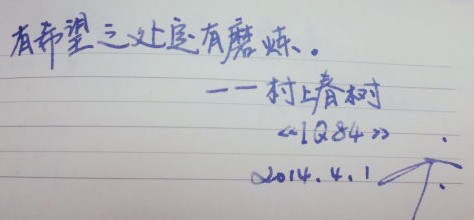 有希望之处定有磨炼.
——村上春树
《1Q84》
2014.4.1